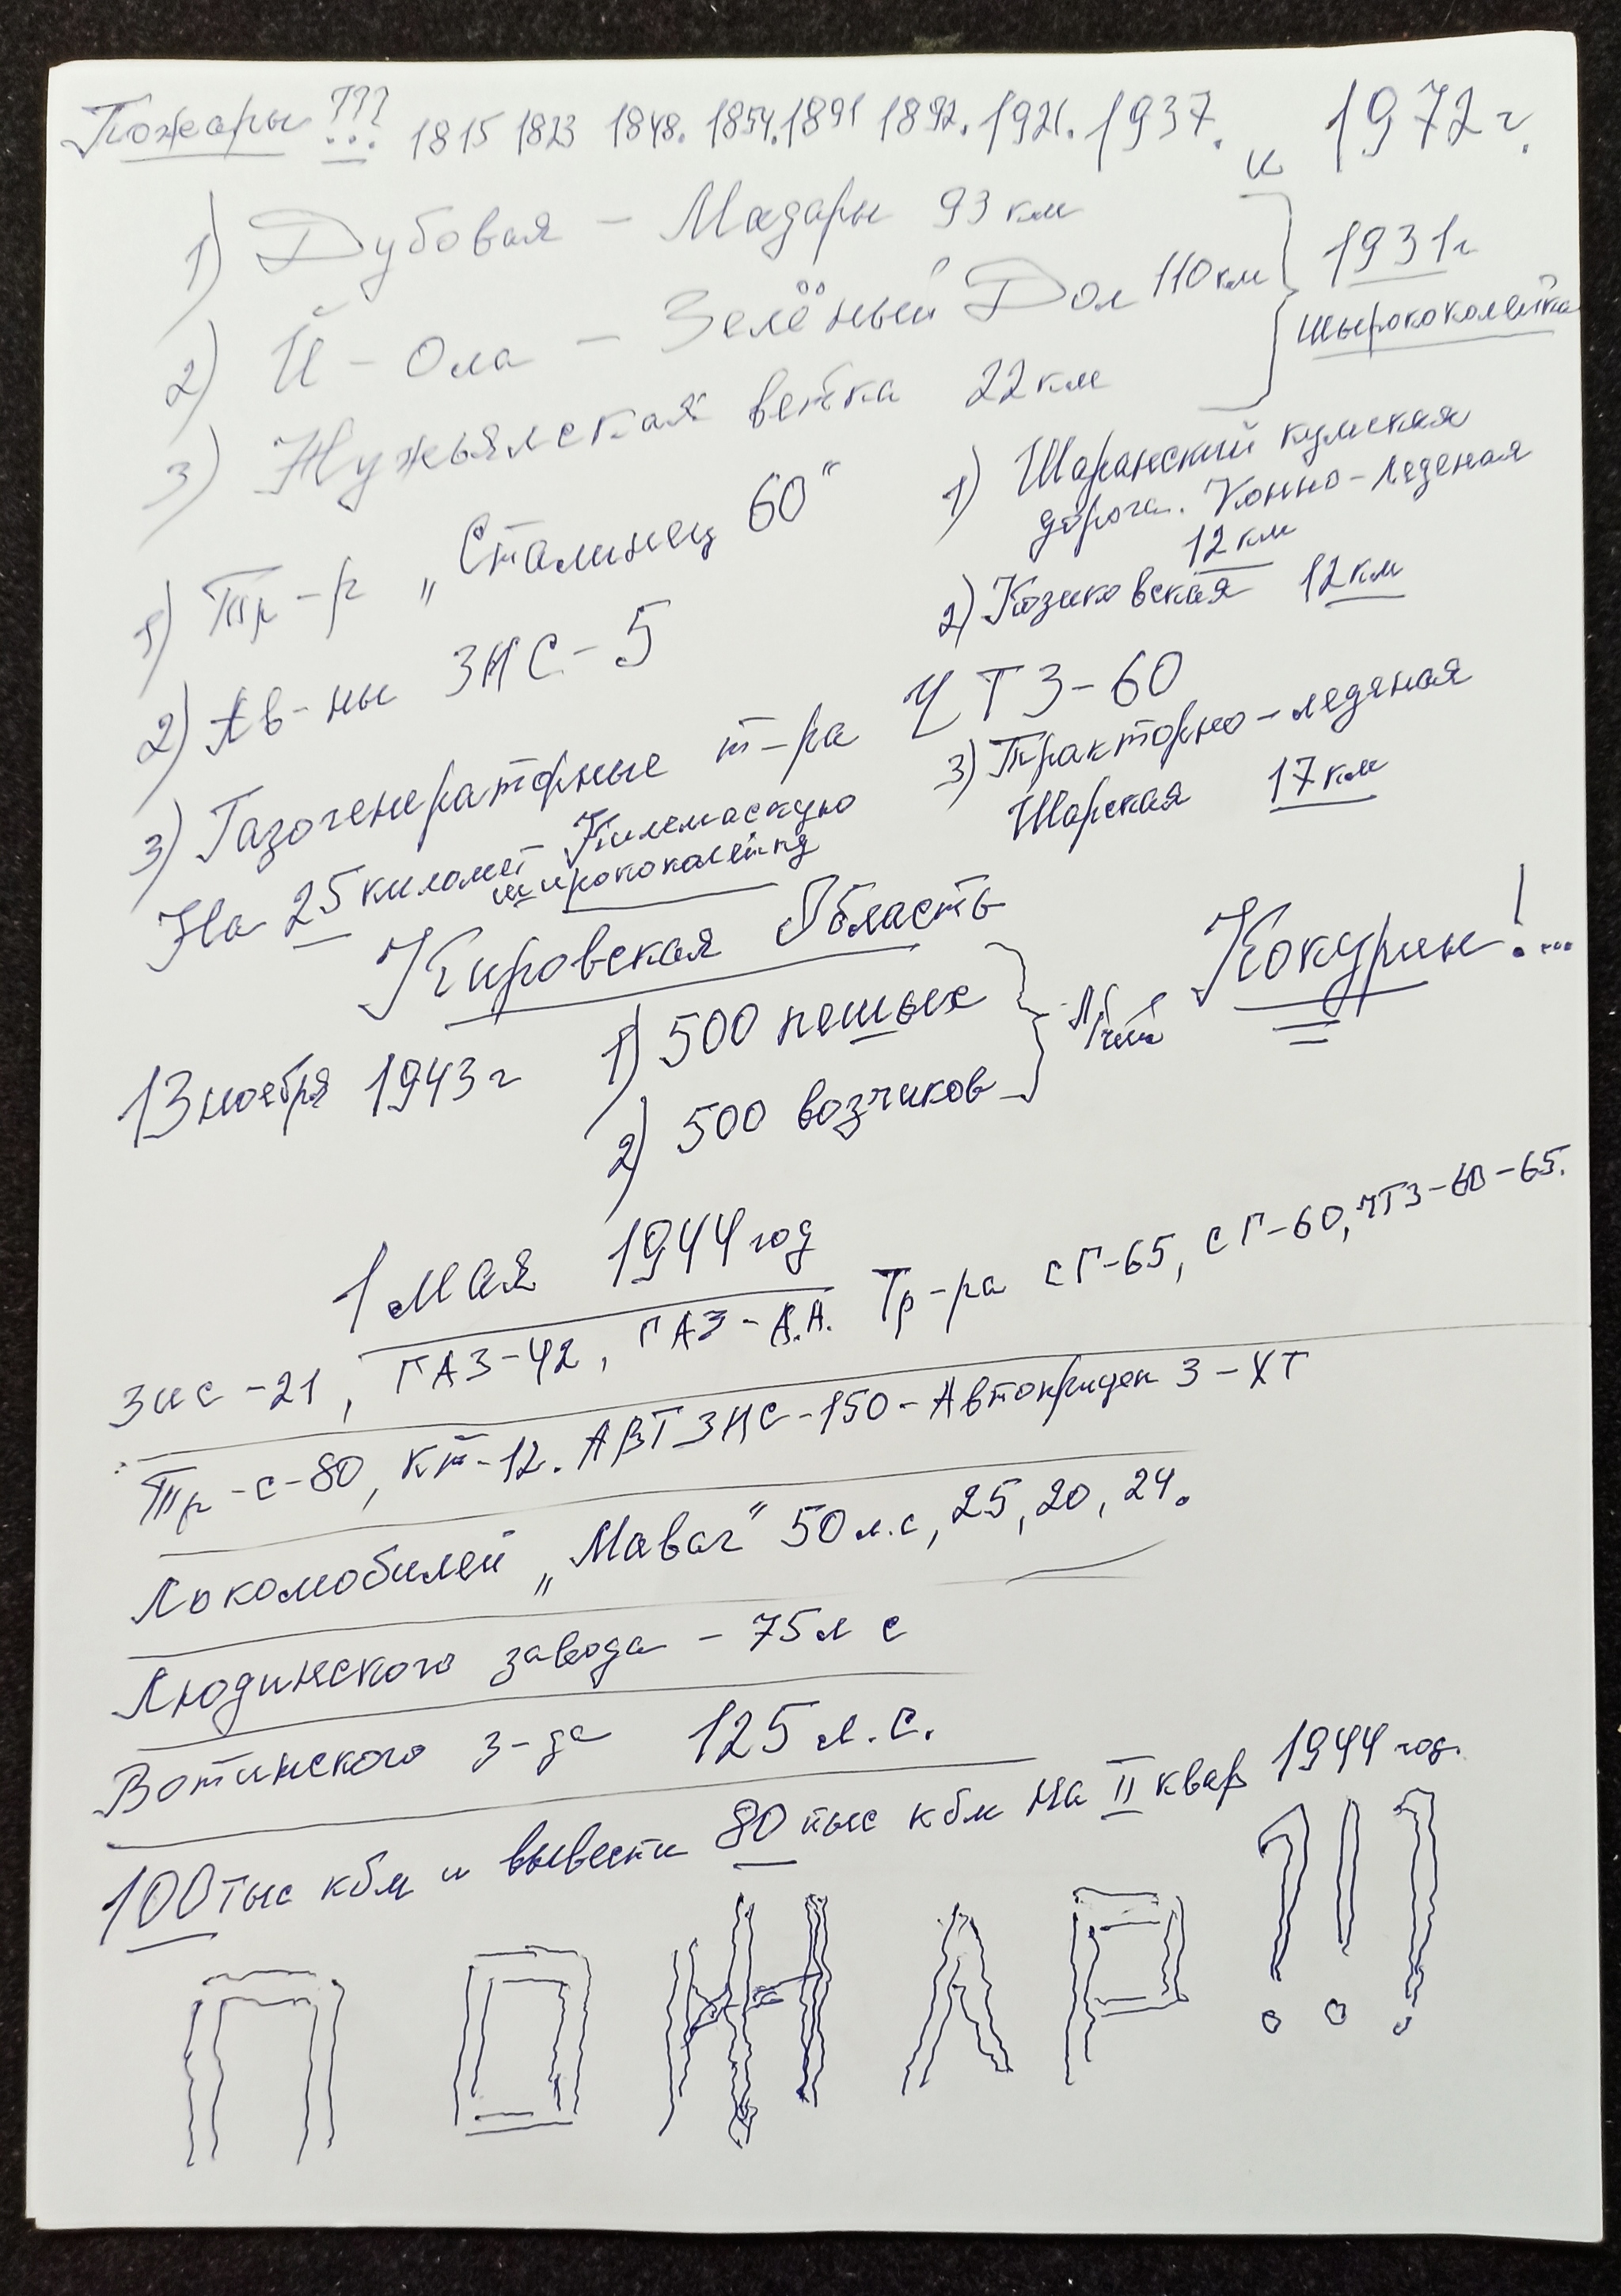 Пожары ???... 1815 1823 1848. 1854. 1891 1892. 1921. 1937. и 1972 г.
1) Дубовая - Мадары 93 км
2) Й - Ола - Зелёный Дол 110 км
1931 г
шырококолейка
3) Нужьялская ветка 22 км
1) Шаранский кумская
дорога. Конно-леденая
12 км
1) Тр-р „Сталинец 60"
2) Козиковская 12 км
2) Ав-ны ЗИС-5
3) Газогенераторные т-ра ЧТЗ-60
3) Тракторно-ледяная
Шарская 17 км
На 25 километ Килемаскую
ширококолейка
Кировская Область
13 ноября 1943 г
1) 500 пешых
2) 500 возчиков
Кокурин!...
1 мая 1944 год
Зис-21, ГАЗ-42, ГАЗ-А.А. Тр-ра СГ-65, СГ-60, ЧТЗ-60-65.
Тр-с-80, КТ-12. АВТ ЗИС-150-Автокриден 3-ХТ
Локомобилей „Маваг" 50 л.с, 25, 20, 24.
Людинского завода - 75 л с
Вотинского з-да 125 л.с.
100 тыс кбм и вывести 80 тыс кбм на II квар 1944 год.
ПОЖАР!!!